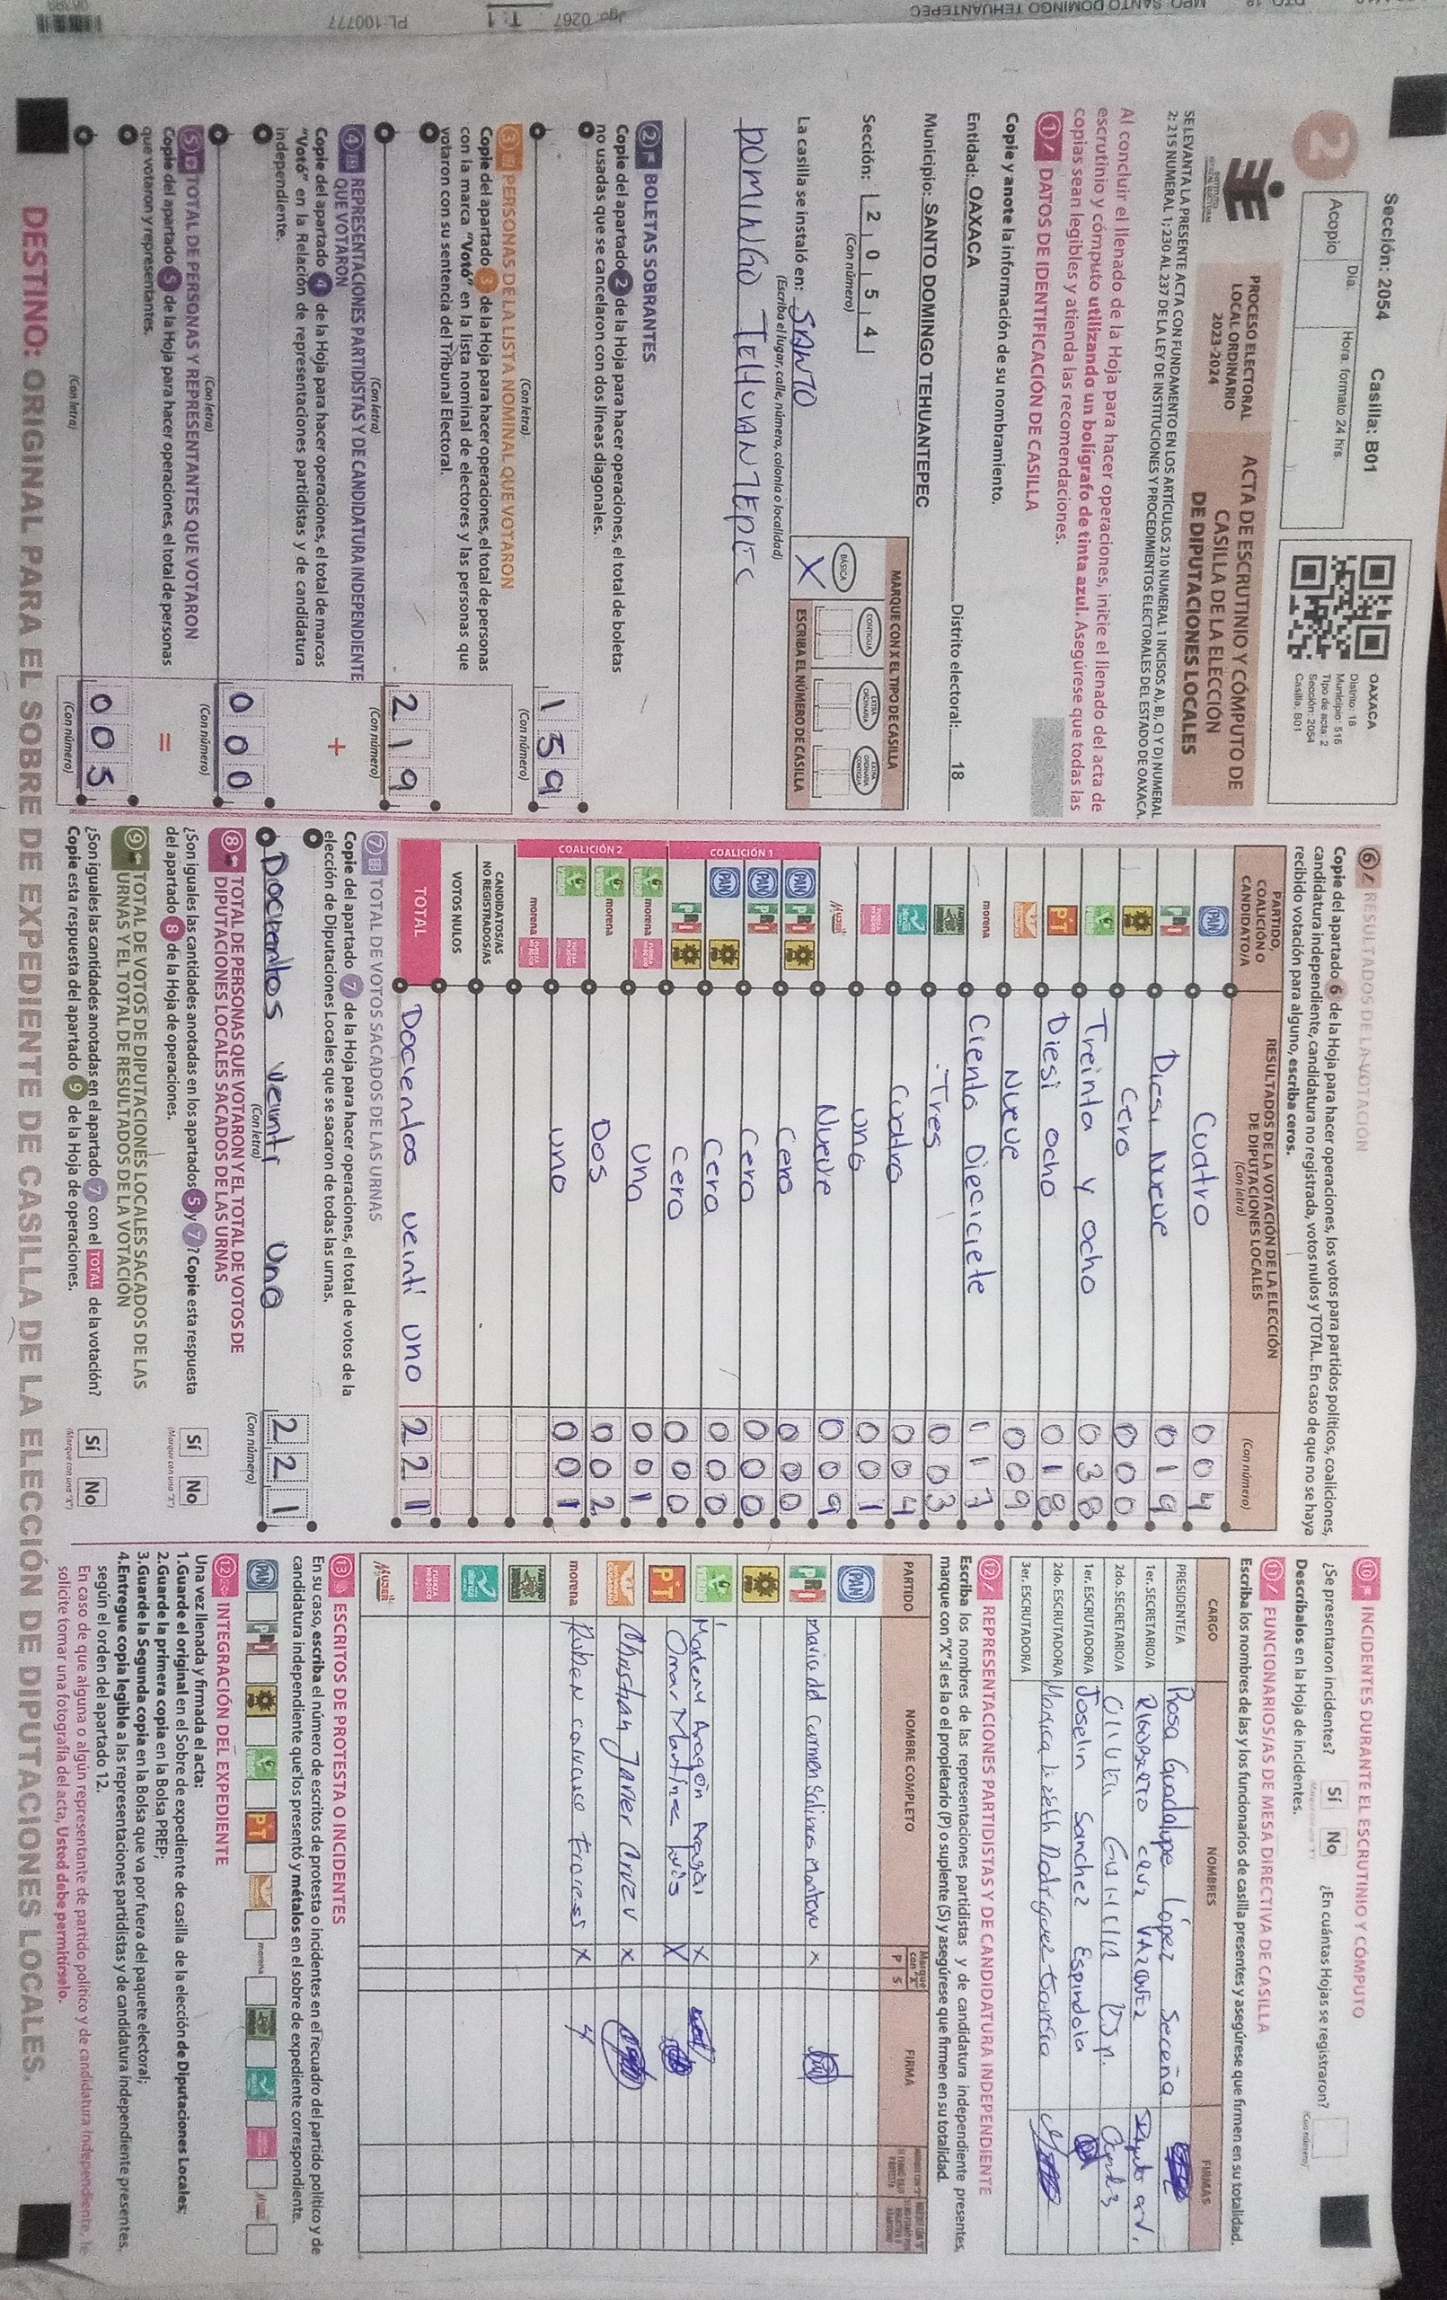 Sección: 2054 Casilla: B01
2
Acopio
Día:
Hora, formato 24 hrs.
OAXACA
Distrito: 18
Municipio: 515
Tipo de acta: 2
Sección: 2054
Casilla: B01
PROCESO ELECTORAL
LOCAL ORDINARIO
2023-2024
ACTA DE ESCRUTINIO Y CÓMPUTO DE
CASILLA DE LA ELECCIÓN
DE DIPUTACIONES LOCALES
SE LEVANTA LA PRESENTE ACTA CON FUNDAMENTO EN LOS ARTÍCULOS 210 NUMERAL 1 INCISOS A), B), C) Y D) NUMERAL
2; 215 NUMERAL 1; 230 AL 237 DE LA LEY DE INSTITUCIONES Y PROCEDIMIENTOS ELECTORALES DEL ESTADO DE OAXACA.
Al concluir el llenado de la Hoja para hacer operaciones, inicie el llenado del acta de
escrutinio y cómputo utilizando un bolígrafo de tinta azul. Asegúrese que todas las
copias sean legibles y atienda las recomendaciones.
1 DATOS DE IDENTIFICACIÓN DE CASILLA
Copie y anote la información de su nombramiento.
Entidad: OAXACA Distrito electoral: 18
Municipio: SANTO DOMINGO TEHUANTEPEC
Sección: 2 0 5 4
(Con número)
MARQUE CON X EL TIPO DE CASILLA
BÁSICA CONTIGUA EXTRA ORDINARIA EXTRA ORDINARIA CONTIGUA
X
ESCRIBA EL NÚMERO DE CASILLA
La casilla se instaló en: SANTO
(Escriba el lugar, calle, número, colonia o localidad)
DOMINGO TEHUANTEPEC
2 BOLETAS SOBRANTES
Copie del apartado 2 de la Hoja para hacer operaciones, el total de boletas
no usadas que se cancelaron con dos líneas diagonales.
1 3 9
(Con letra) (Con número)
3 PERSONAS DE LA LISTA NOMINAL QUE VOTARON
Copie del apartado 3 de la Hoja para hacer operaciones, el total de personas
con la marca "Votó" en la lista nominal de electores y las personas que
votaron con su sentencia del Tribunal Electoral.
2 1 9
(Con letra) (Con número)
4 REPRESENTACIONES PARTIDISTAS Y DE CANDIDATURA INDEPENDIENTE
QUE VOTARON
+
Copie del apartado 4 de la Hoja para hacer operaciones, el total de marcas
"Votó" en la Relación de representaciones partidistas y de candidatura
independiente.
0 0 0
(Con letra) (Con número)
5 TOTAL DE PERSONAS Y REPRESENTANTES QUE VOTARON
=
Copie del apartado 5 de la Hoja para hacer operaciones, el total de personas
que votaron y representantes.
0 0 5
(Con letra) (Con número)
6 RESULTADOS DE LA VOTACIÓN
Copie del apartado 6 de la Hoja para hacer operaciones, los votos para partidos políticos, coaliciones,
candidatura independiente, candidatura no registrada, votos nulos y TOTAL. En caso de que no se haya
recibido votación para alguno, escriba ceros.
PARTIDO,
COALICIÓN O
CANDIDATO/A
RESULTADOS DE LA VOTACIÓN DE LA ELECCIÓN
DE DIPUTACIONES LOCALES
(Con letra)
(Con número)
PAN Cuatro 0 0 4
PRI Diesi Nueve 0 1 9
Cero 0 0 0
Treinta y ocho 0 3 8
PT Diesi ocho 0 1 8
Nueve 0 0 9
morena Ciento Dieciciete 1 1 7
Tres 0 0 3
Cuatro 0 0 4
uno 0 0 1
MUJER Nueve 0 0 9
COALICIÓN 1
PAN PRI Cero 0 0 0
PAN PRI Cero 0 0 0
PAN Cero 0 0 0
PRI Cero 0 0 0
COALICIÓN 2
morena Uno 0 0 1
morena Dos 0 0 2
uno 0 0 1
morena
CANDIDATOS/AS
NO REGISTRADOS/AS
VOTOS NULOS
TOTAL Docientos veinti uno 2 2 1
7 TOTAL DE VOTOS SACADOS DE LAS URNAS
Copie del apartado 7 de la Hoja para hacer operaciones, el total de votos de la
elección de Diputaciones Locales que se sacaron de todas las urnas.
Docientos Veinti Uno 2 2 1
(Con letra) (Con número)
8 TOTAL DE PERSONAS QUE VOTARON Y EL TOTAL DE VOTOS DE
DIPUTACIONES LOCALES SACADOS DE LAS URNAS
¿Son iguales las cantidades anotadas en los apartados 5 y 7? Copie esta respuesta
del apartado 8 de la Hoja de operaciones.
Sí No
(Marque con una "X")
9 TOTAL DE VOTOS DE DIPUTACIONES LOCALES SACADOS DE LAS
URNAS Y EL TOTAL DE RESULTADOS DE LA VOTACIÓN
¿Son iguales las cantidades anotadas en el apartado 7 con el TOTAL de la votación?
Copie esta respuesta del apartado 9 de la Hoja de operaciones.
Sí No
(Marque con una "X")
10 INCIDENTES DURANTE EL ESCRUTINIO Y CÓMPUTO
¿Se presentaron incidentes? Sí No ¿En cuántas Hojas se registraron?
(Con número)
Descríbalos en la Hoja de incidentes.
11 FUNCIONARIOS/AS DE MESA DIRECTIVA DE CASILLA
Escriba los nombres de las y los funcionarios de casilla presentes y asegúrese que firmen en su totalidad.
CARGO NOMBRES FIRMAS
PRESIDENTE/A Rosa Guadalupe López Seceña
1er. SECRETARIO/A RIGOBERTO CRUZ VAZQUEZ
2do. SECRETARIO/A
1er. ESCRUTADOR/A Joselin Sanchez Espindola
2do. ESCRUTADOR/A Monica Lizbeth Rodriguez Garcia
3er. ESCRUTADOR/A
12 REPRESENTACIONES PARTIDISTAS Y DE CANDIDATURA INDEPENDIENTE
Escriba los nombres de las representaciones partidistas y de candidatura independiente presentes,
marque con "X" si es la o el propietario (P) o suplente (S) y asegúrese que firmen en su totalidad.
PARTIDO NOMBRE COMPLETO Marque con "X" P S FIRMA
PAN
PRI maria del Carmen Salinas Montero X
Marleny Aragón Aragón X
PT Omar Martínez Luis X
Christian Javier Cruz V X
morena Ruben Carrasco Flores X
MUJER
13 ESCRITOS DE PROTESTA O INCIDENTES
En su caso, escriba el número de escritos de protesta o incidentes en el recuadro del partido político y de
candidatura independiente que los presentó y métalos en el sobre de expediente correspondiente.
PAN PRI PT morena MUJER
12 INTEGRACIÓN DEL EXPEDIENTE
Una vez llenada y firmada el acta:
1.Guarde el original en el Sobre de expediente de casilla de la elección de Diputaciones Locales;
2.Guarde la primera copia en la Bolsa PREP;
3.Guarde la Segunda copia en la Bolsa que va por fuera del paquete electoral;
4.Entregue copia legible a las representaciones partidistas y de candidatura independiente presentes,
según el orden del apartado 12.
En caso de que alguna o algún representante de partido político y de candidatura independiente, le
solicite tomar una fotografía del acta, Usted debe permitírselo.
DESTINO: ORIGINAL PARA EL SOBRE DE EXPEDIENTE DE CASILLA DE LA ELECCIÓN DE DIPUTACIONES LOCALES.
MPO SANTO DOMINGO TEHUANTEPEC
Jgo. 0267 T: 1 PL: 100777